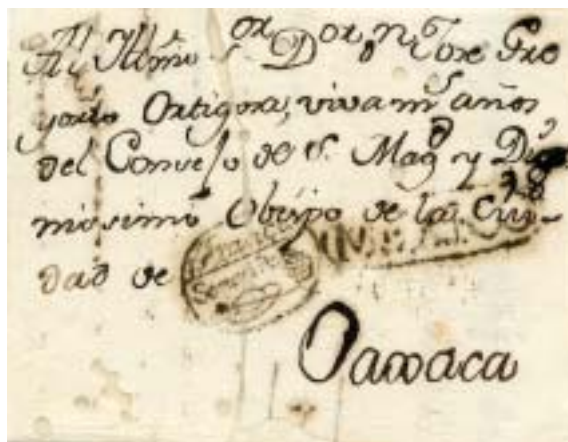 Al Illmo Sor Dor Dn Jose Gre
gorio Ortigosa, viva ms años
del Consejo de S. Magd y Dig
nisimo Obispo de la Ciu-
dad de
Oaxaca